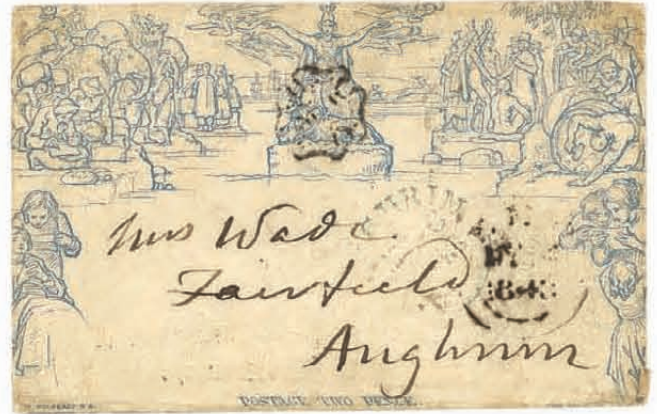 Mrs Wade
Fairfield
Aughrim
POSTAGE TWO PENCE